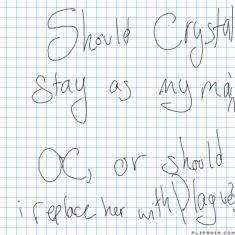 Should Crystal
stay as my main
OC, or should
i replace her with Plague?
FLIPANIM.COM